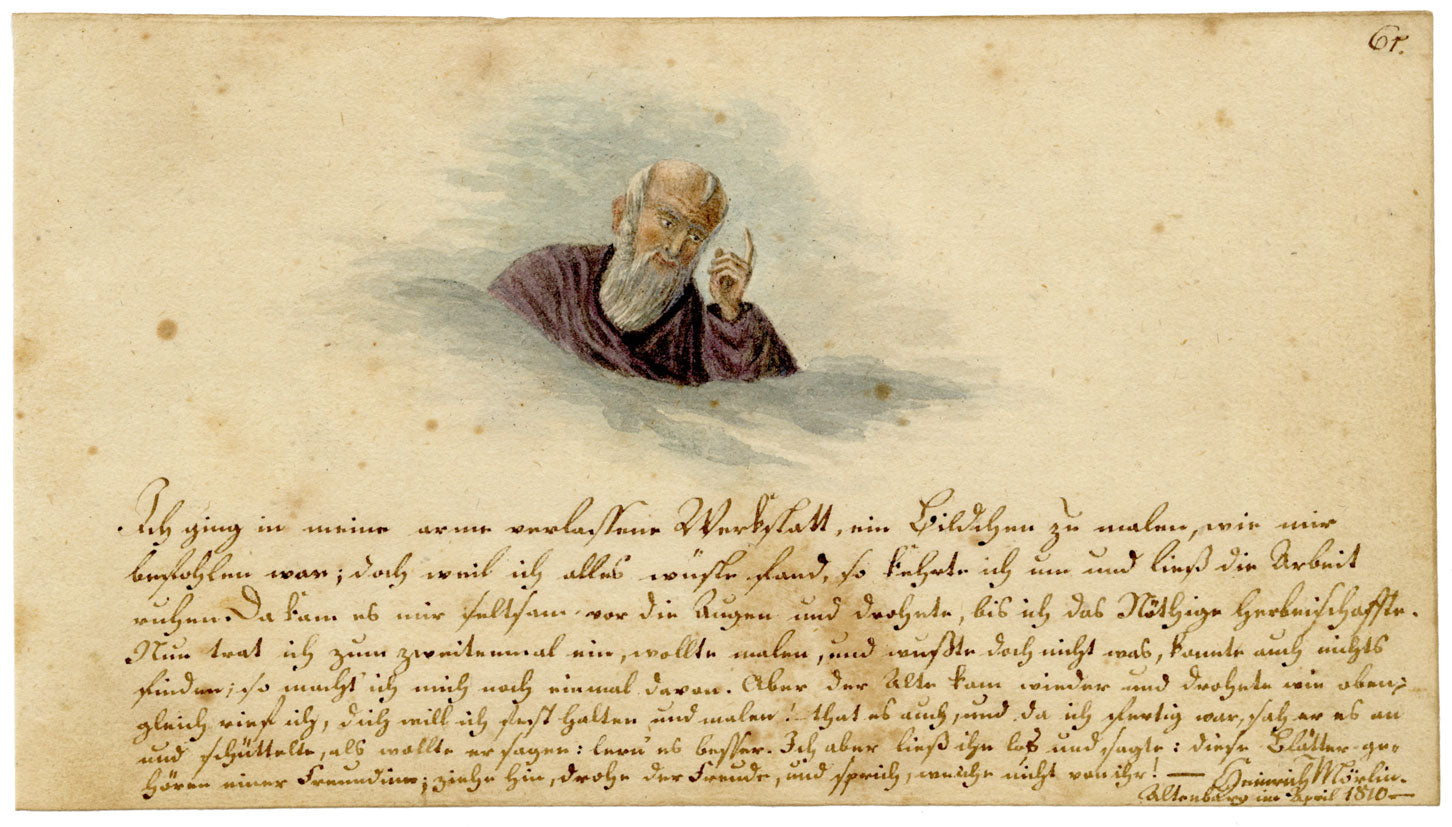 61.
Ich ging in meine arme verlassene Werkstatt, ein Bildchen zu malen, wie mir
befohlen war; doch weil ich alles wüste fand, so kehrte ich um und ließ die Arbeit
ruhen. Da kam es mir seltsam vor die Augen und drohete, bis ich das Nöthige herbeischaffte.
Nun trat ich zum zweitenmal ein, wollte malen, und wußte doch nicht was, konnte auch nichts
finden; so macht ich mich noch einmal davon. Aber der Alte kam wieder und drohete wie oben;
gleich rief ich, dich will ich fest halten und malen! – that es auch, und da ich fertig war, sah er es an
und schüttelte, als wollte er sagen: lern es besser. Ich aber ließ ihn los und sagte: diese Blätter ge-
hören einer Freundinn; ziehe hin, drohe der Freude, und sprich, weiche nicht von ihr! — Heinrich Mörlin.
Altenburg im April 1810 —